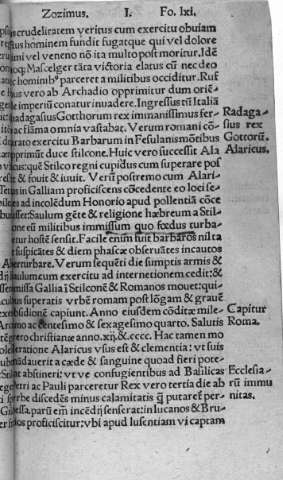 Zozimus. I. Fo. lxi.
crudelitatem veritus cum exercitu obuiam
hominem fundit fugatque qui vel dolore
vel veneno nō ita multo post moritur. Idē
Mascelger tāta victoria elatus cū nec deo
hominibꝰ parceret a militibus occiditur. Ruf
vero ab Archadio opprimitur dum oriē-
imperiū conatur inuadere. Ingressus tū Italiā
Radagasius Gotthorum rex immanissimus fer- Radaga-
ac flāma omnia vastabat. Verum romani cō- sius rex
exercitu Barbarum in Fesulanis mōtibus Gottorū.
duce stilcone. Huic vero successit Ala Alaricus.
quē Stilco regni cupidus cum superare pos
& fouit & iuuit. Verū postremo cum Alari-
in Galliam proficiscens cōcedente eo loci se-
ad incolēdum Honorio apud pollentiā cōce
Saulum gēte & religione hæbreum a Stil-
eū militibus immissum quo fœdus turba-
hostē sensit. Facile enim fuit barbaros nil ta
suspicātes & diem phasæ obseruātes incautos
perturbare. Verum sequēti die sumptis armis &
exercitu ad internecionem cedit: &
Gallia ī Stilconē & Romanos mouet: qui-
superatis vrbē romam post lōgam & grauē
exobsidionē capiunt. Anno eiusdem cōditæ mile- Capitur
centesimo & sexagesimo quarto. Salutis Roma.
vero christianæ anno. xij. & .cccc. Hac tamen mo
Alaricus vsus est & clementia: vt suis
a cæde & sanguine quoad fieri pote-
abstineri: vt ve confugientibus ad Basilicas Ecclesia-
Petri ac Pauli parceretur Rex vero tertia die ab rū immu
vrbe discedēs minus calamitatis ꝗ̄ putaret per- nitas.
parū em̄ incēdij senserat: in lucanos & Bru-
proficiscitur: vbi apud lusentiam vi captam